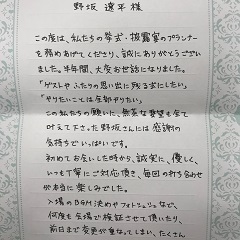 野坂 遼平 様
この度は、私たちの挙式・披露宴のプランナー
を務めあげてくださり、誠にありがとうござい
ました。半年間、大変お世話になりました。
「ゲストやふたりの思い出に残る式にしたい」
「やりたいことは全部やりたい」
この私たちの願いに、無茶な要望も全て
叶えて下さった野坂さんには感謝の
気持ちでいっぱいです。
初めてお会いした時から、誠実に、優しく、
いつも丁寧にご対応頂き、毎回の打ち合わせ
が本当に楽しみでした。
入場のBGM決めやフォトシュなど、
何度も会場で検証させて頂いたり、
前日まで変更が重なってしまい、たくさん